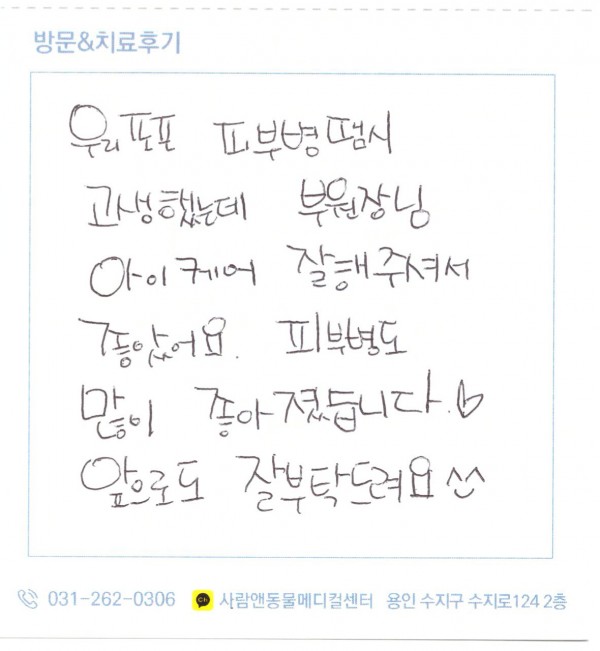 방문&치료후기
우리 포포 피부병땜시
고생했는데 부원장님
아이케어 잘해주셔서
좋았어요. 피부병도
많이 좋아졌듭니다.♡
앞으로도 잘부탁드려요 ^^
031-262-0306 Ch 사람앤동물메디컬센터 용인 수지구 수지로124 2층